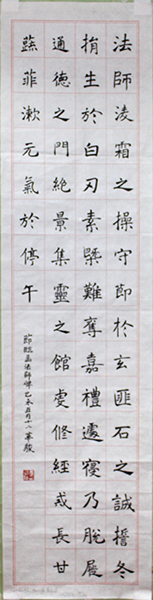 法師凌霜之操守即於玄匪石之誠擔冬
捐生於白刃素槩難奪嘉禮遽寢乃脫屣
通德之門絕景集靈之館虔修經戒長甘
蔬菲漱元氣於停午
節臨孟法師碑乙